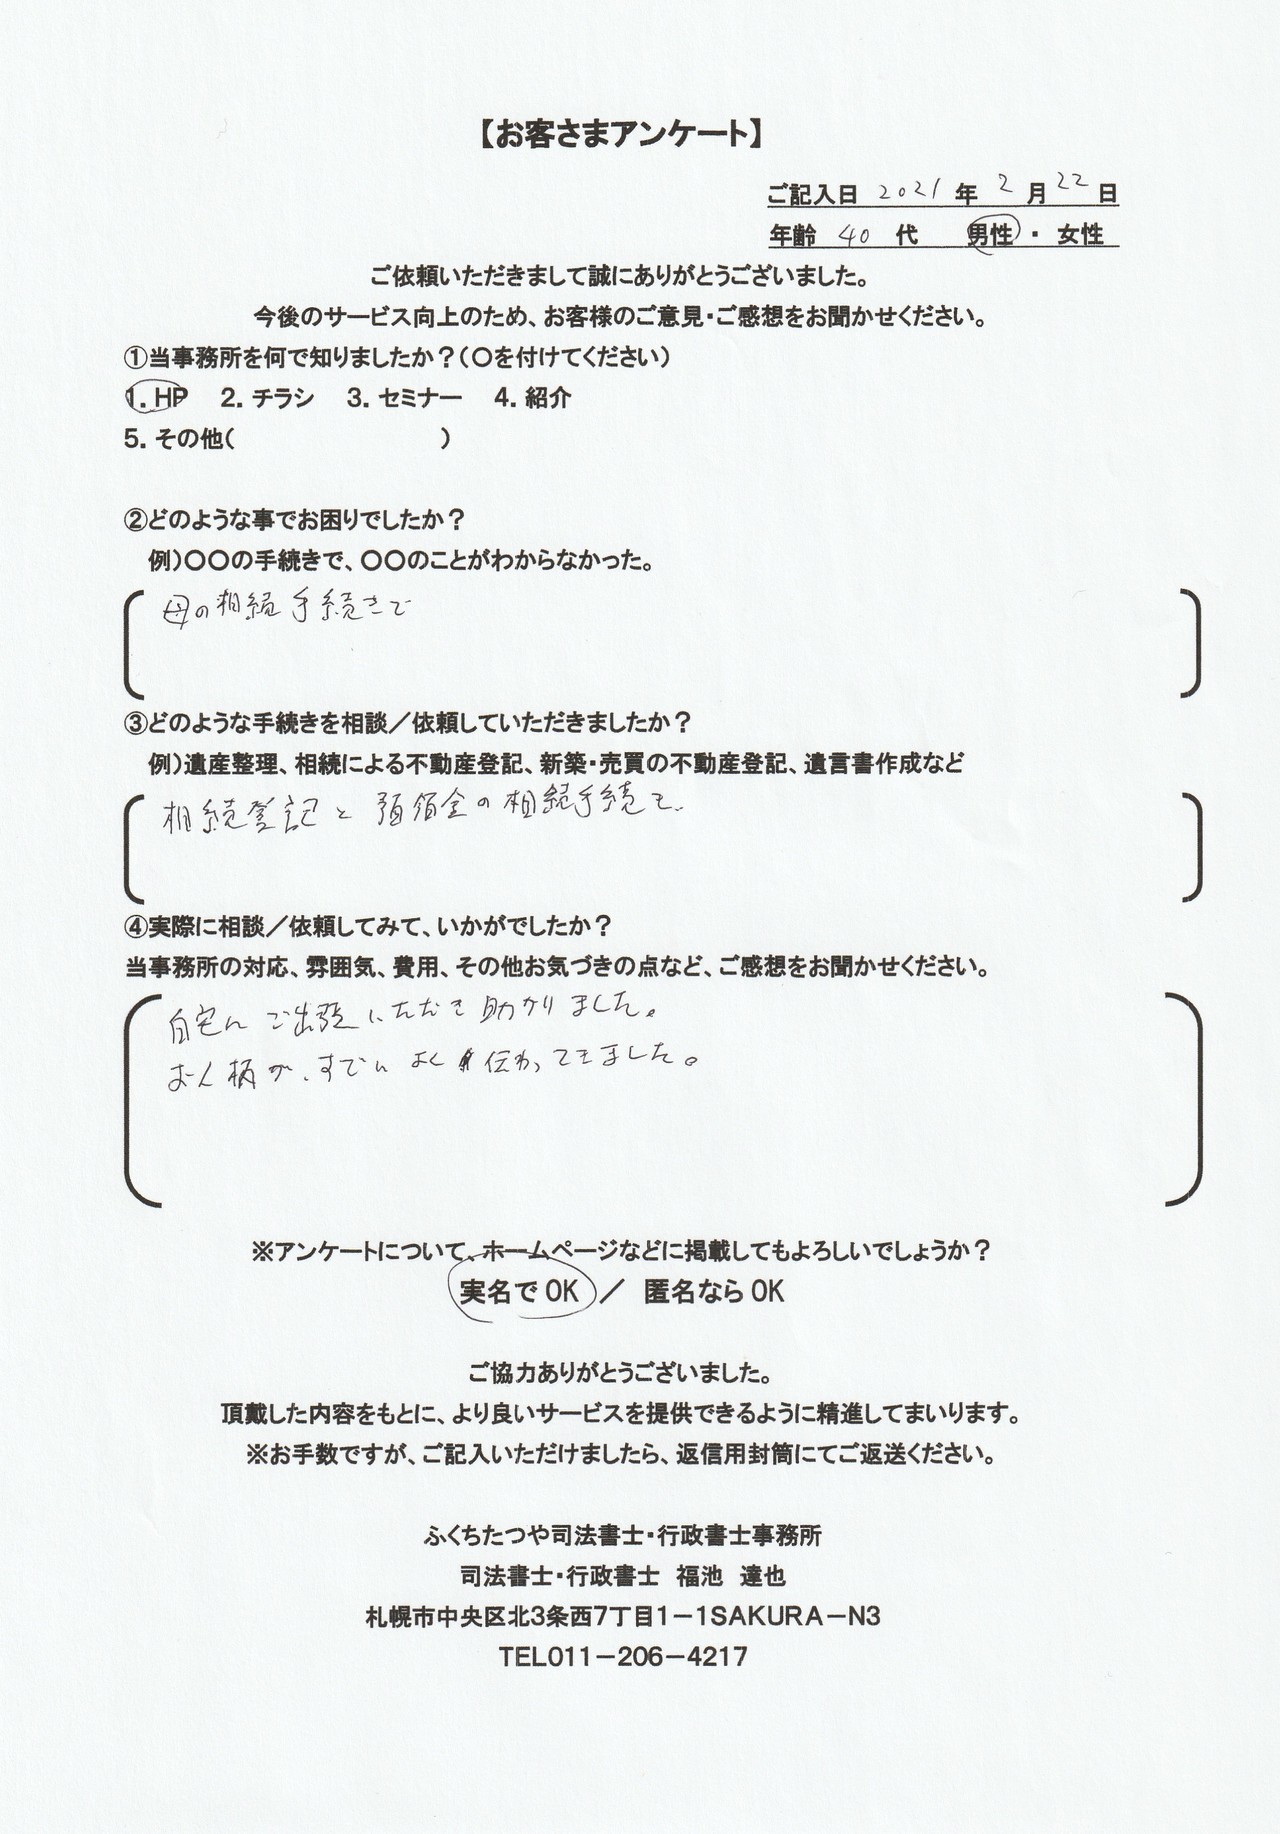 【お客さまアンケート】
ご記入日 2021 年 2 月 22 日
年齢 40 代 男性 ・ 女性
ご依頼いただきまして誠にありがとうございました。
今後のサービス向上のため、お客様のご意見・ご感想をお聞かせください。
①当事務所を何で知りましたか？（〇を付けてください）
1. HP 2. チラシ 3. セミナー 4. 紹介
5. その他（ ）
②どのような事でお困りでしたか？
例）〇〇の手続きで、〇〇のことがわからなかった。
母の相続手続きで
③どのような手続きを相談／依頼していただきましたか？
例）遺産整理、相続による不動産登記、新築・売買の不動産登記、遺言書作成など
相続登記と預領金の相続手続を
④実際に相談／依頼してみて、いかがでしたか？
当事務所の対応、雰囲気、費用、その他お気づきの点など、ご感想をお聞かせください。
自宅にご出張いただき助かりました。
お人柄が、すでによく伝わってきました。
※アンケートについて、ホームページなどに掲載してもよろしいでしょうか？
実名で OK ／ 匿名なら OK
ご協力ありがとうございました。
頂戴した内容をもとに、より良いサービスを提供できるように精進してまいります。
※お手数ですが、ご記入いただけましたら、返信用封筒にてご返送ください。
ふくちたつや司法書士・行政書士事務所
司法書士・行政書士 福池 達也
札幌市中央区北3条西7丁目1－1SAKURA－N3
TEL011－206－4217